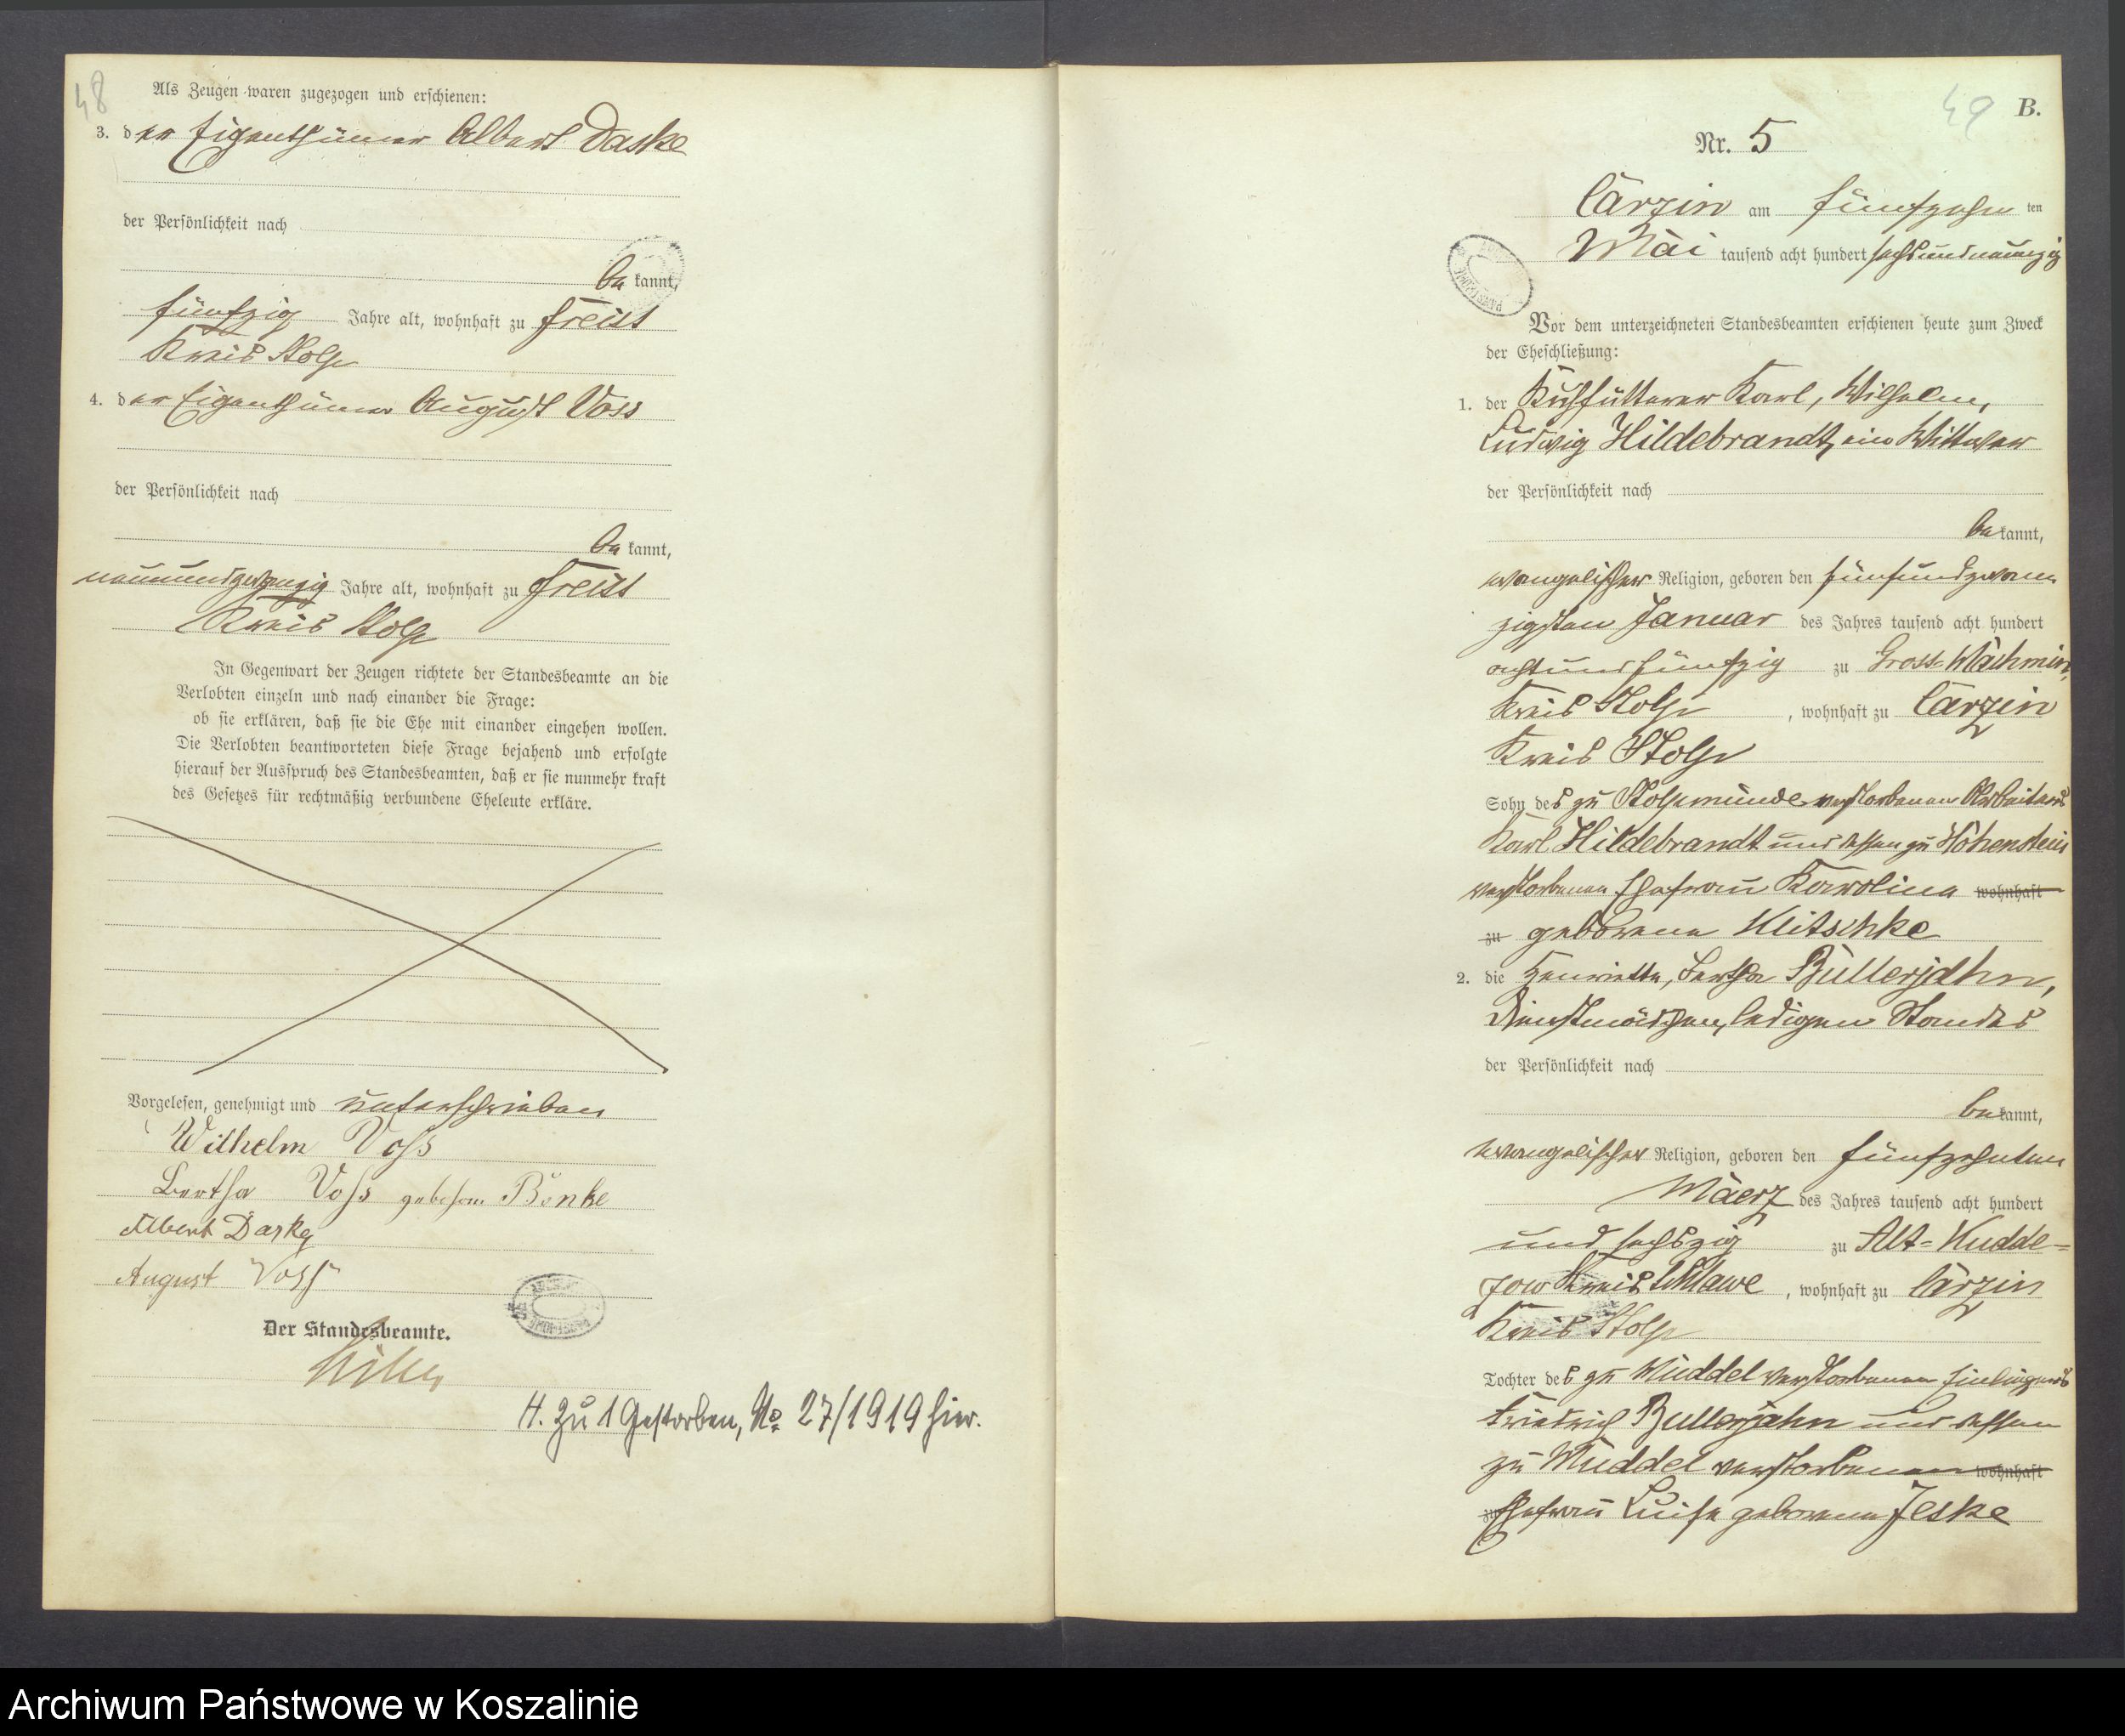 48
Als Zeugen waren zugezogen und erschienen:
3. der Eigenthümer Albert Daske
der Persönlichkeit nach
be kannt,
fünfzig Jahre alt, wohnhaft zu Freist
Kreis Stolp
4. der Eigenthümer August Voss
der Persönlichkeit nach
be kannt,
neunundzwanzig Jahre alt, wohnhaft zu Freist
Kreis Stolp
In Gegenwart der Zeugen richtete der Standesbeamte an die
Verlobten einzeln und nach einander die Frage:
ob sie erklären, daß sie die Ehe mit einander eingehen wollen.
Die Verlobten beantworteten diese Frage bejahend und erfolgte
hierauf der Ausspruch des Standesbeamten, daß er sie nunmehr kraft
des Gesetzes für rechtmäßig verbundene Eheleute erkläre.
Vorgelesen, genehmigt und unterschrieben
Wilhelm Voß
Bertha Voß geborn Bönke
Albert Daske
August Voß
Der Standesbeamte.
H. zu 1 Gestorben, No 27/1919 hier.
49 B.
Nr. 5
Carzin am fünfzehn ten
Mai tausend acht hundert sechsundneunzig
Vor dem unterzeichneten Standesbeamten erschienen heute zum Zweck
der Eheschließung:
1. der Kuhfütterer Karl, Wilhelm,
Ludwig Hildebrandt, ein Wittwer
der Persönlichkeit nach
be kannt,
evangelischer Religion, geboren den fünfundzwan
zigsten Januar des Jahres tausend acht hundert
achtundfünfzig zu Gross-Machmin,
Kreis Stolp, wohnhaft zu Carzin
Kreis Stolp
Sohn des zu Stolpmünde verstorbenen Arbeiters
Karl Hildebrandt und dessen zu Hohenstein
verstorbenen Ehefrau Karoline wohnhaft
zu geborene Klitschke
2. die Henriette, Bertha Bullerjahn,
Dienstmädchen, ledigen Standes
der Persönlichkeit nach
be kannt,
evangelischer Religion, geboren den fünfzehnten
Maerz des Jahres tausend acht hundert
und sechszig zu Alt-Kudde-
zow Kreis Schlawe, wohnhaft zu Carzin
Kreis Stolp
Tochter des zu Muddel verstorbenen Einliegers
Friedrich Bullerjahn und dessen
zu Muddel verstorbenen wohnhaft
zu Ehefrau Luise geborene Jeske
Archiwum Państwowe w Koszalinie